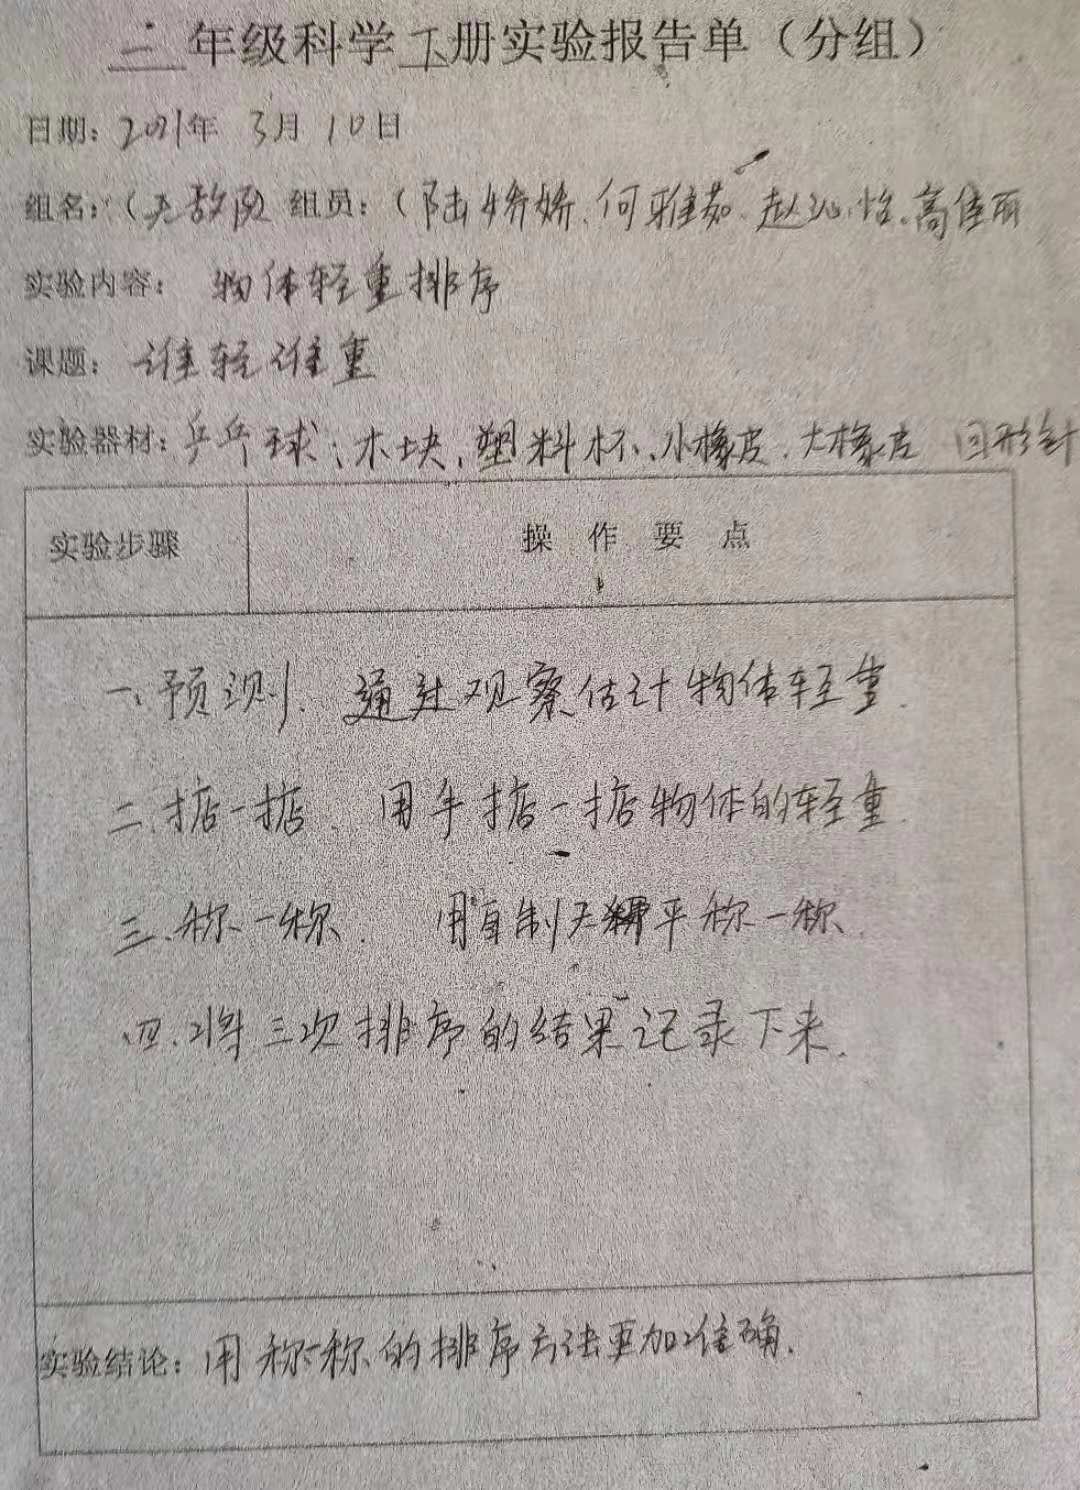 二年级科学下册实验报告单（分组）
日期：2021年 3月 10日
组名：（无敌队 组员：（陆娇娇、何雅茹、赵沁怡、高佳丽
实验内容： 物体轻重排序
课题： 谁轻谁重
实验器材：乒乓球、木块、塑料杯、小橡皮、大橡皮 回形针
实验步骤 操 作 要 点
一、预测、通过观察估计物体轻重.
二、掂一掂、用手掂一掂物体的轻重.
三、称一称、 用自制天平称一称.
四、将三次排序的结果记录下来.
实验结论：用称一称的排序方法更加准确.